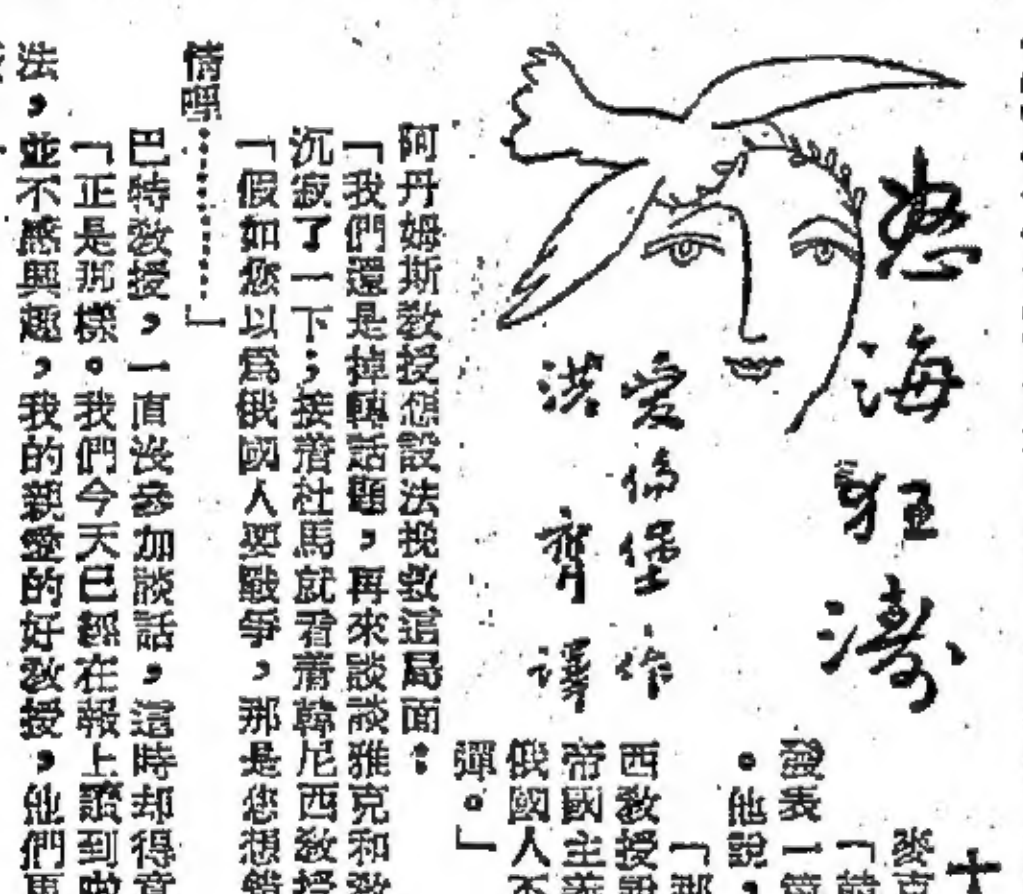 怒海狂濤
愛倫堡作
洪齊譯
十
麥克
發表一篇
。他說，
「那
西教授說
帝國主義
俄國人不
彈。」
阿丹姆斯教授想設法挽救這局面：
「我們還是掉轉話題，再來談談雅克和
沉寂了一下；接着杜馬就看着韓尼西教授
「假如您以爲俄國人要戰爭，那是您想錯
情哩………」
巴特教授，一直沒參加談話，這時却得意
「正是那樣。我們今天已經在報上讀到啦
法，並不感興趣，我的親愛的好教授，他們再